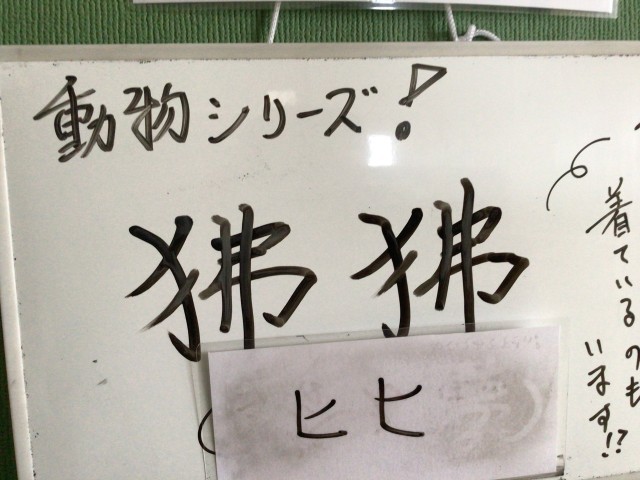 動物シリーズ!
狒狒
ヒヒ
着ているのも
います!?